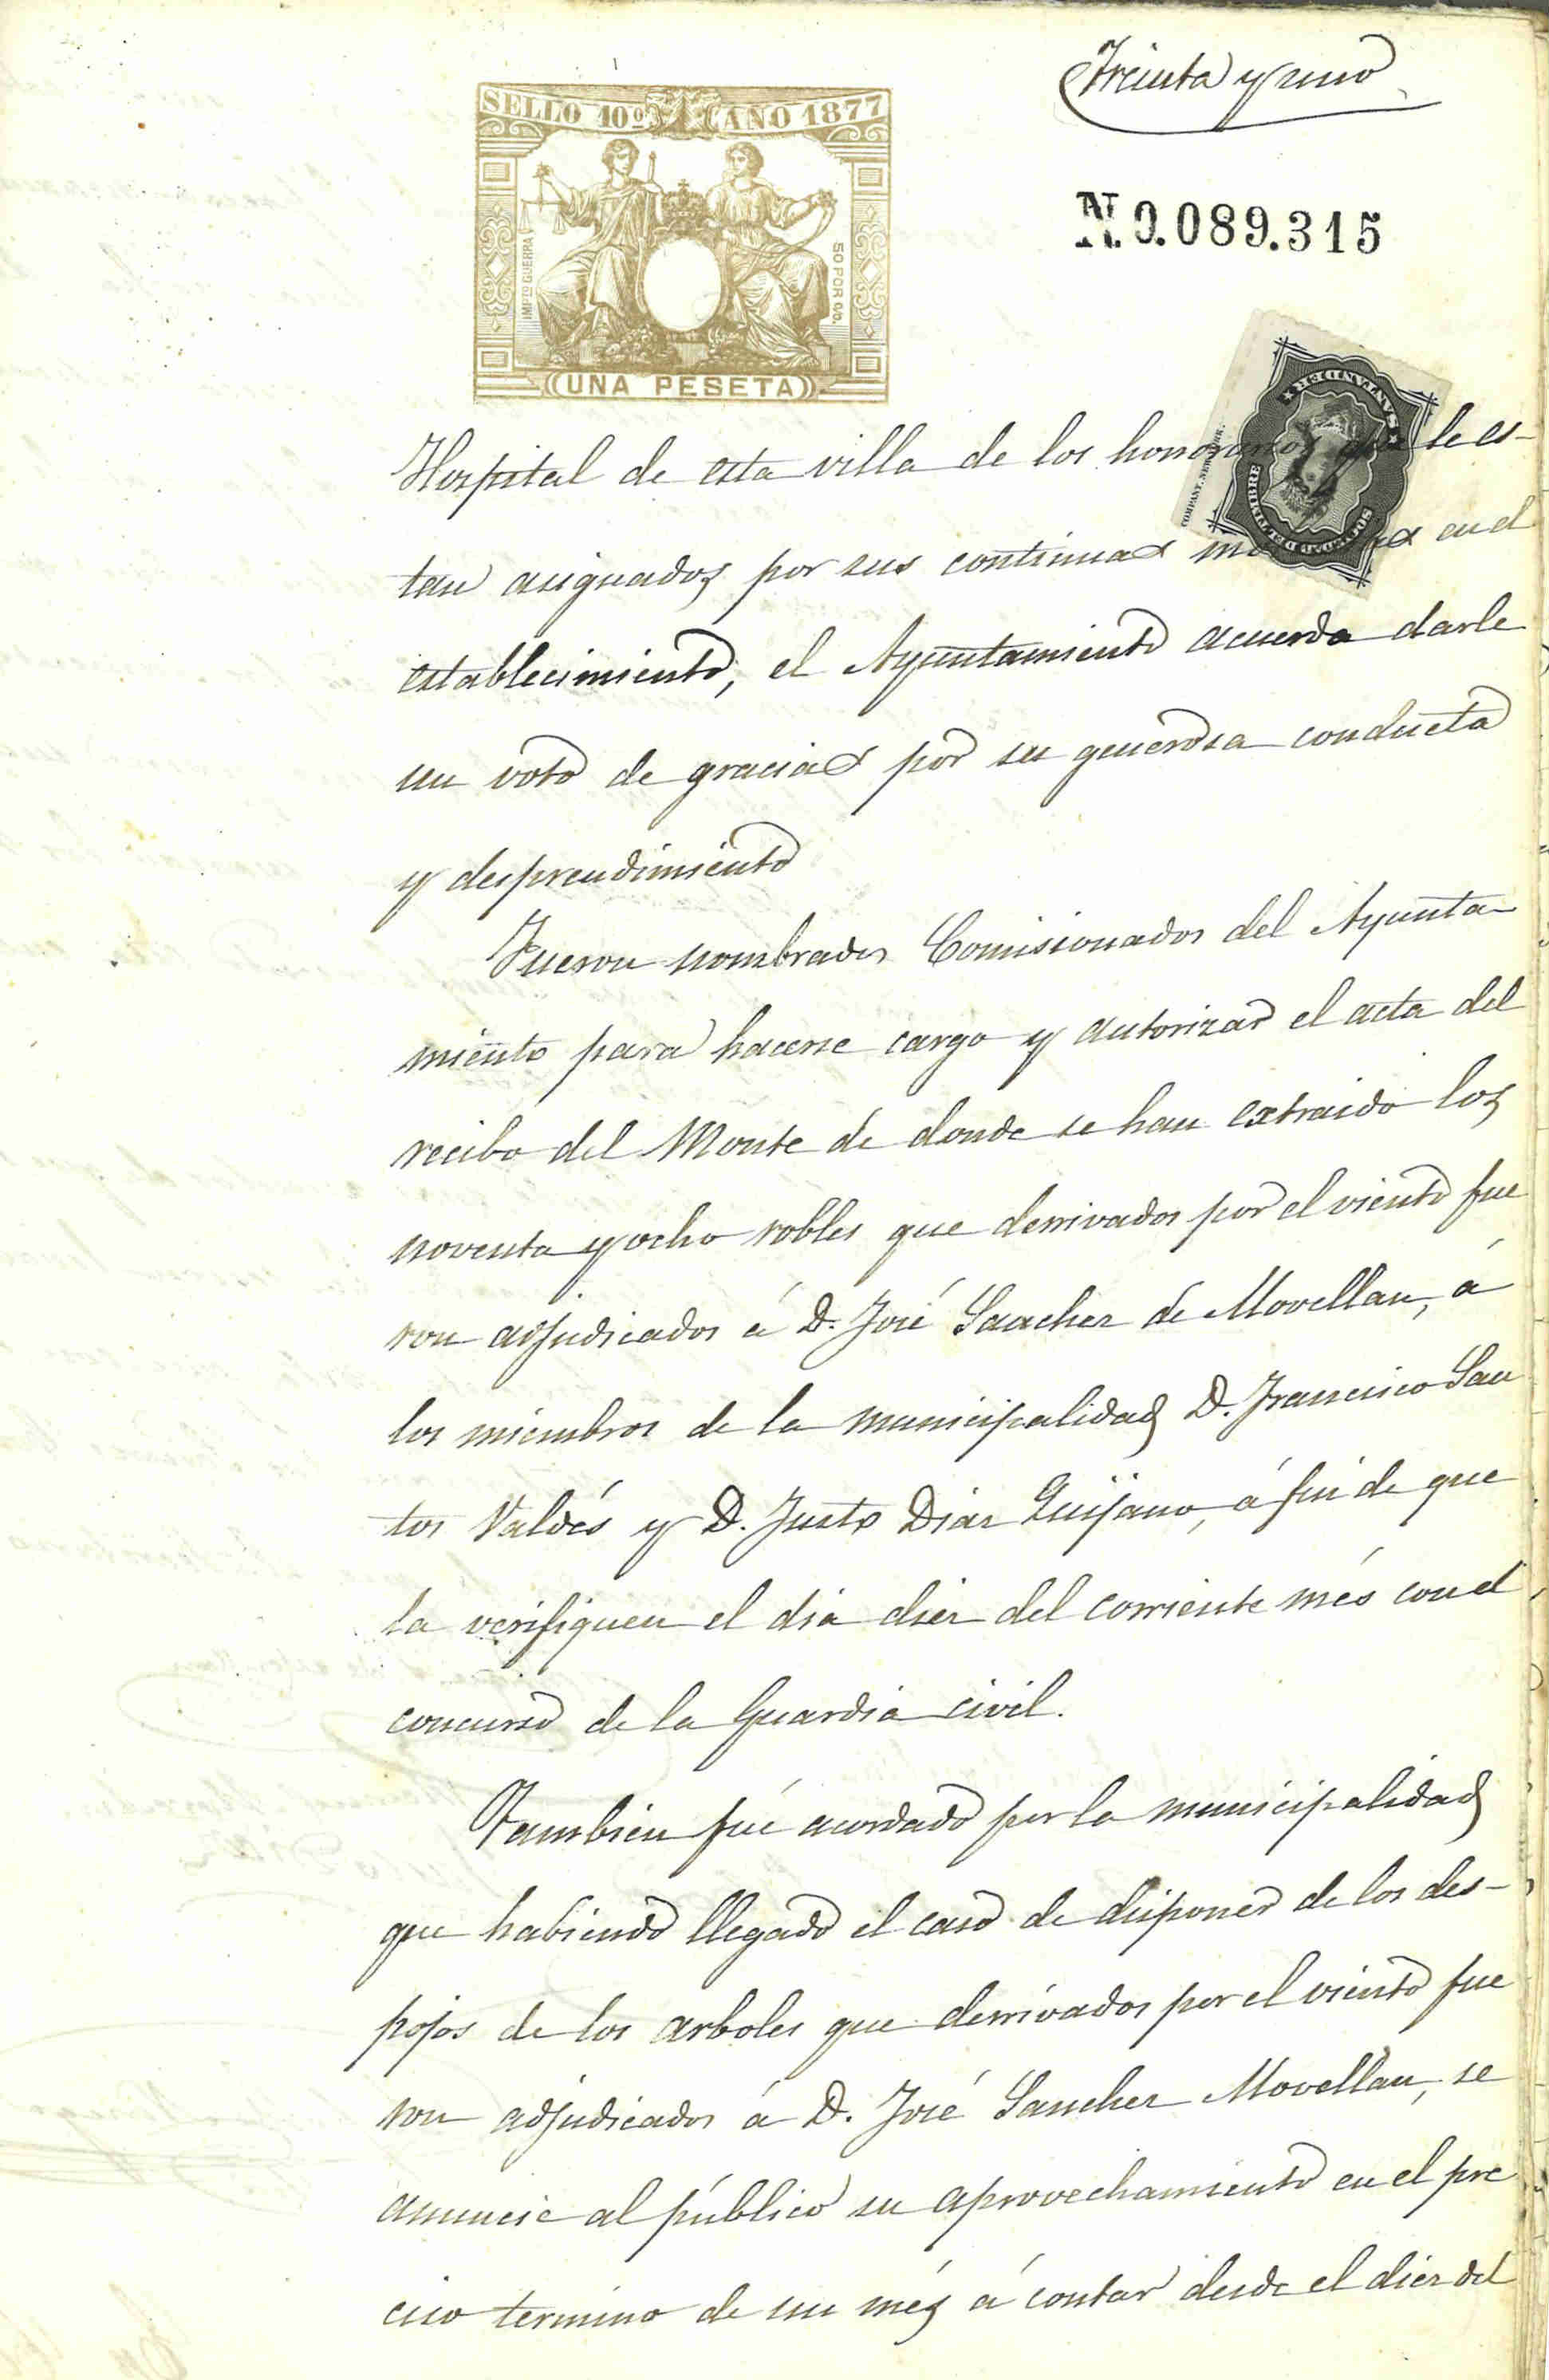 Treinta y uno
SELLO 10º AÑO 1877
IMPTO GUERRA
50 POR 0/0.
UNA PESETA
N.0.089.315
SANTANDER
SOCIEDAD DEL TIMBRE
COMPANY, NEW YORK.
Hospital de esta villa de los honorarios que le es-
tan asignados por sus continuas en el
establecimiento, el Ayuntamiento acuerda darle
un voto de gracias por su generosa conducta
y desprendimiento
Fueron nombrados Comisionados del Ayunta-
miento para hacerse cargo y autorizar el acta del
recibo del Monte de donde se han extraido los
noventa y ocho robles que derrivados por el viento fue
ron adjudicados á D. José Saachez de Movellan, á
los miembros de la municipalidad D. Francisco San
tos Valdés y D. Justo Diaz Quijano, á fin de que
la verifiquen el dia diez del corriente més con el
concurso de la Guardia civil.
Tambien fué acordado por la municipalidad
que habiendo llegado el caso de disponer de los des-
pojos de los arboles que derrivados por el viento fue
ron adjudicados á D. José Sanchez Movellan, se
anuncie al público su aprovechamiento en el pre
ciso termino de un més á contar desde el diez del